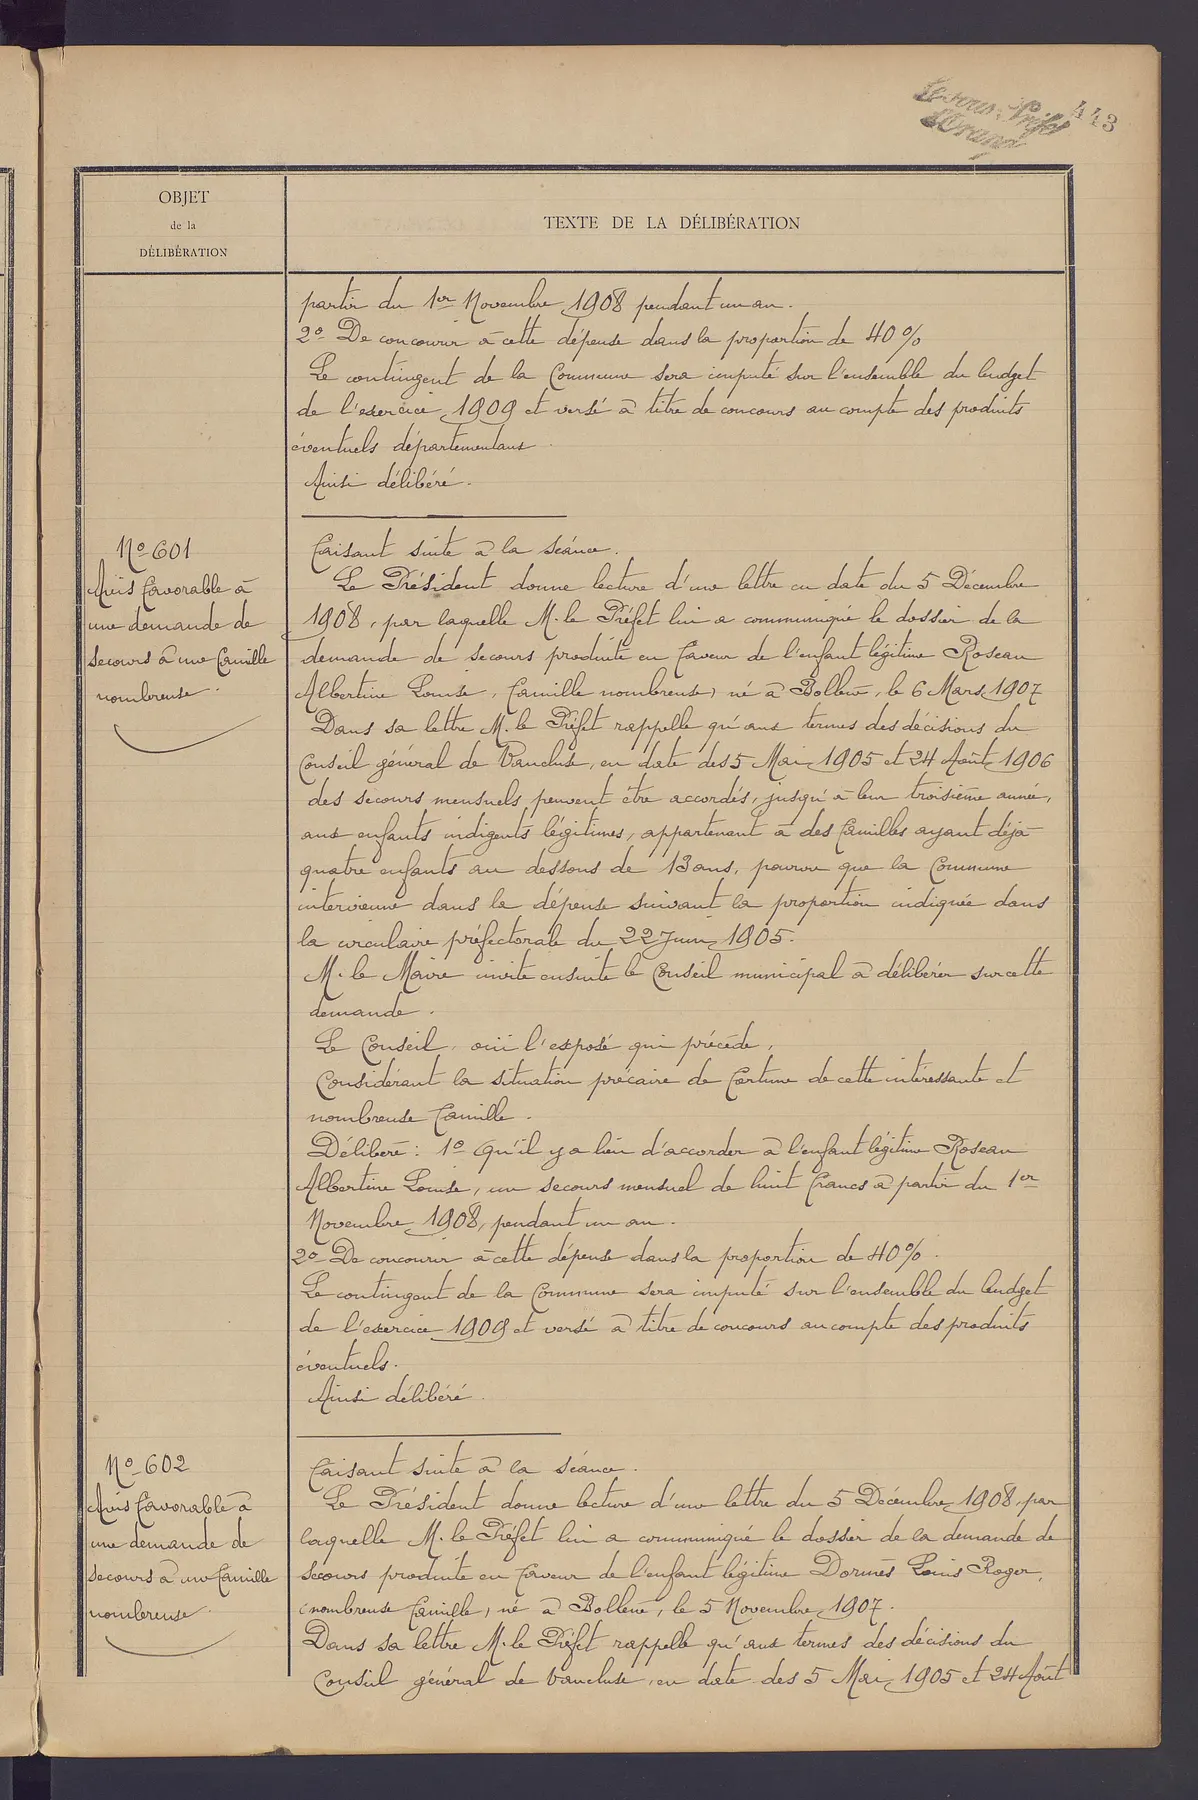 Le sous-Préfet
443
OBJET
de la
DÉLIBÉRATION
TEXTE DE LA DÉLIBÉRATION
partir du 1er Novembre 1908 pendant un an.
2º De concourir à cette dépense dans la proportion de 40 %
Le contingent de la Commune sera imputé sur l'ensemble du budget
de l'exercice 1909 et versé à titre de concours au compte des produits
éventuels départementaux.
Ainsi délibéré.
Nº 601
Avis favorable à
une demande de
secours à une famille
nombreuse.
Faisant suite à la séance.
Le Président donne lecture d'une lettre en date du 5 Décembre
1908, par laquelle M. le Préfet lui a communiqué le dossier de la
demande de secours produite en faveur de l'enfant légitime Roseau
Albertine Louise, (famille nombreuse) né à Bollène, le 6 Mars 1907
Dans sa lettre M. le Préfet rappelle qu'aux termes des décisions du
Conseil général de Vaucluse, en date des 5 Mai 1905 et 24 Août 1906
des secours mensuels peuvent être accordés, jusqu'à leur troisième année,
aux enfants indigents légitimes, appartenant à des familles ayant déjà
quatre enfants au dessous de 13 ans, pourvu que la Commune
intervienne dans la dépense suivant la proportion indiquée dans
la circulaire préfectorale du 22 Juin 1905.
M. le Maire invite ensuite le Conseil municipal à délibérer sur cette
demande.
Le Conseil, ouï l'exposé qui précède,
Considérant la situation précaire de fortune de cette intéressante et
nombreuse famille.
Délibère : 1º Qu'il y a lieu d'accorder à l'enfant légitime Roseau
Albertine Louise, un secours mensuel de huit francs à partir du 1er
Novembre 1908, pendant un an.
2º De concourir à cette dépense dans la proportion de 40 %.
Le contingent de la Commune sera imputé sur l'ensemble du budget
de l'exercice 1909 et versé à titre de concours au compte des produits
éventuels.
Ainsi délibéré.
Nº 602
Avis favorable à
une demande de
secours à une famille
nombreuse.
Faisant suite à la séance.
Le Président donne lecture d'une lettre du 5 Décembre 1908, par
laquelle M. le Préfet lui a communiqué le dossier de la demande de
secours produite en faveur de l'enfant légitime Dormes Louis Roger,
(nombreuse famille) né à Bollène, le 5 Novembre 1907.
Dans sa lettre M. le Préfet rappelle qu'aux termes des décisions du
Conseil général de Vaucluse, en date des 5 Mai 1905 et 24 Août